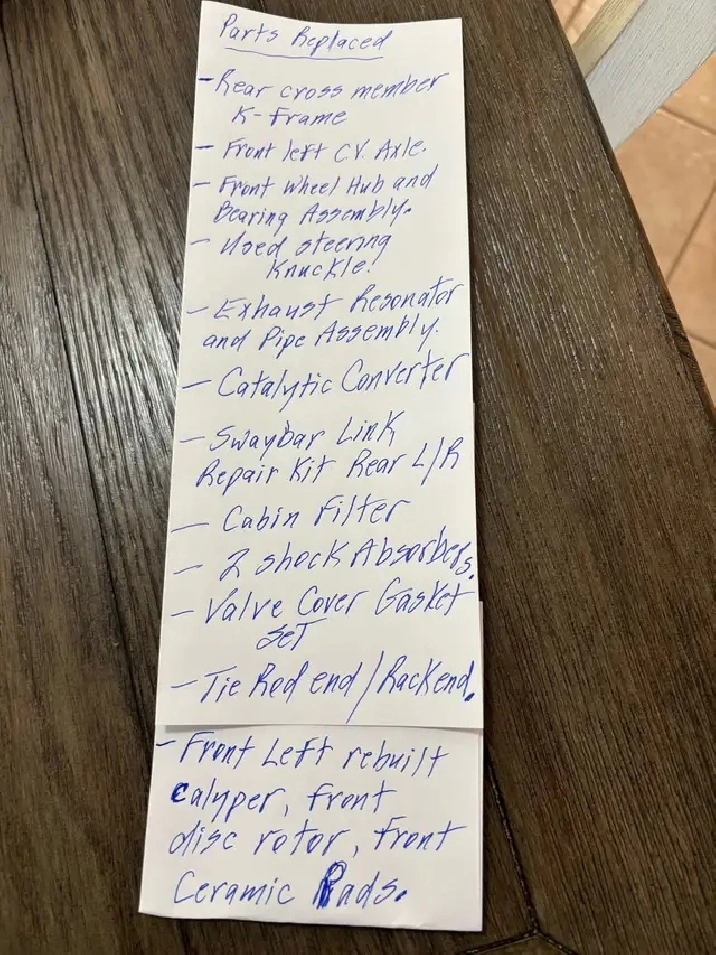 Parts Replaced
- Rear cross member
K-Frame
- Front left C.V. Axle.
- Front Wheel Hub and
Bearing Assembly.
- Used steering
Knuckle!
- Exhaust Resonator
and Pipe Assembly.
- Catalytic Converter
- Swaybar Link
Repair Kit Rear L/R
- Cabin Filter
- 2 shock Absorbers.
- Valve Cover Gasket
SeT
- Tie Rod end / Rackend.
- Front Left rebuilt
Calyper, front
disc rotor, Front
Ceramic Pads.